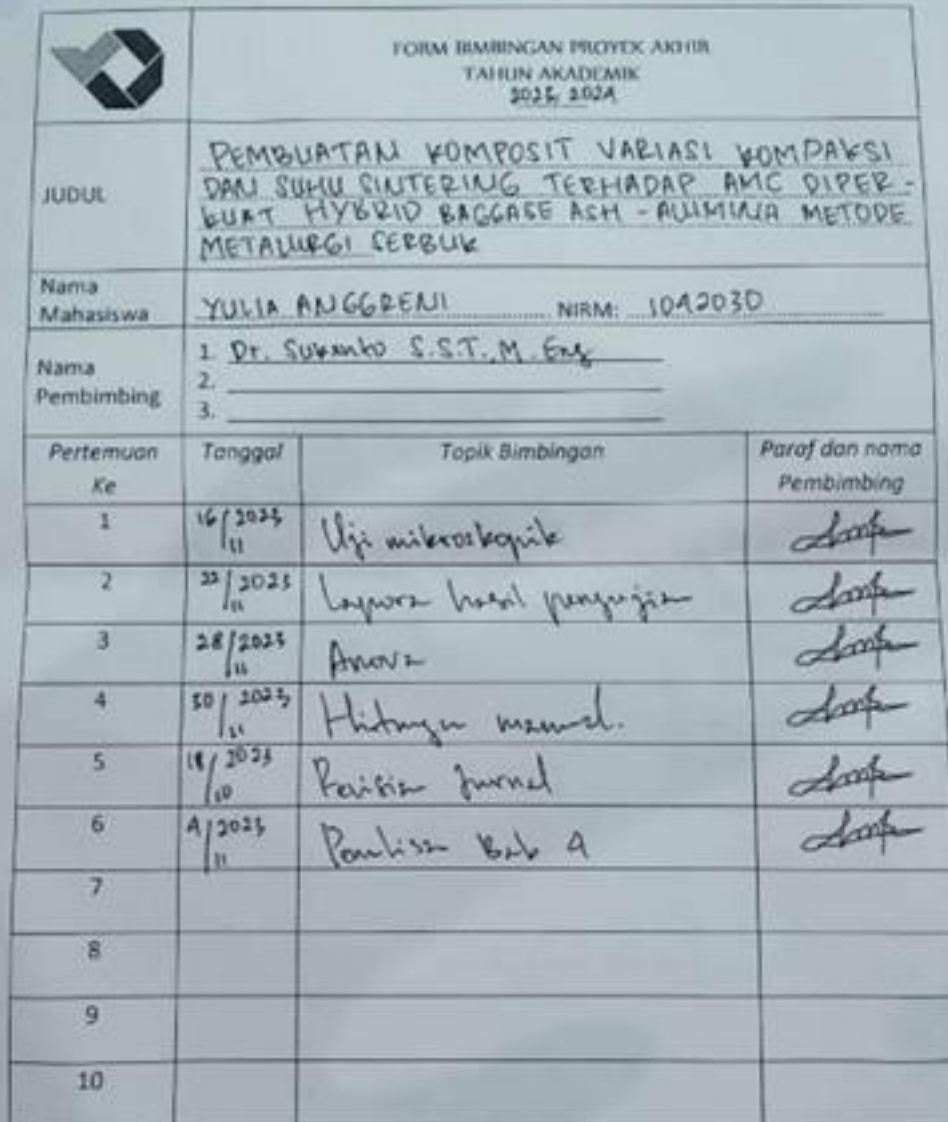 FORM BIMBINGAN PROYEK AKHIR
TAHUN AKADEMIK
2023/2024
JUDUL
PEMBUATAN KOMPOSIT VARIASI KOMPAKSI
DAN SUHU SINTERING TERHADAP AMC DIPER-
KUAT HYBRID BAGGASE ASH - ALUMINA METODE
METALURGI SERBUK
Nama
Mahasiswa
YULIA ANGGRENI NIRM: 1042030
Nama
Pembimbing
1. Dr. Sukanto S.S.T., M. Eng
2.
3.
Pertemuan Ke Tanggal Topik Bimbingan Paraf dan nama Pembimbing
1 16/2023 11 Uji mikroskopik
2 22/2023 11 Laporan hasil pengujian
3 28/2023 11 Anova
4 30/2023 11 Hitungan manual.
5 18/2023 10 Revisian Jurnal
6 4/2023 11 Penulisan Bab 4
7
8
9
10